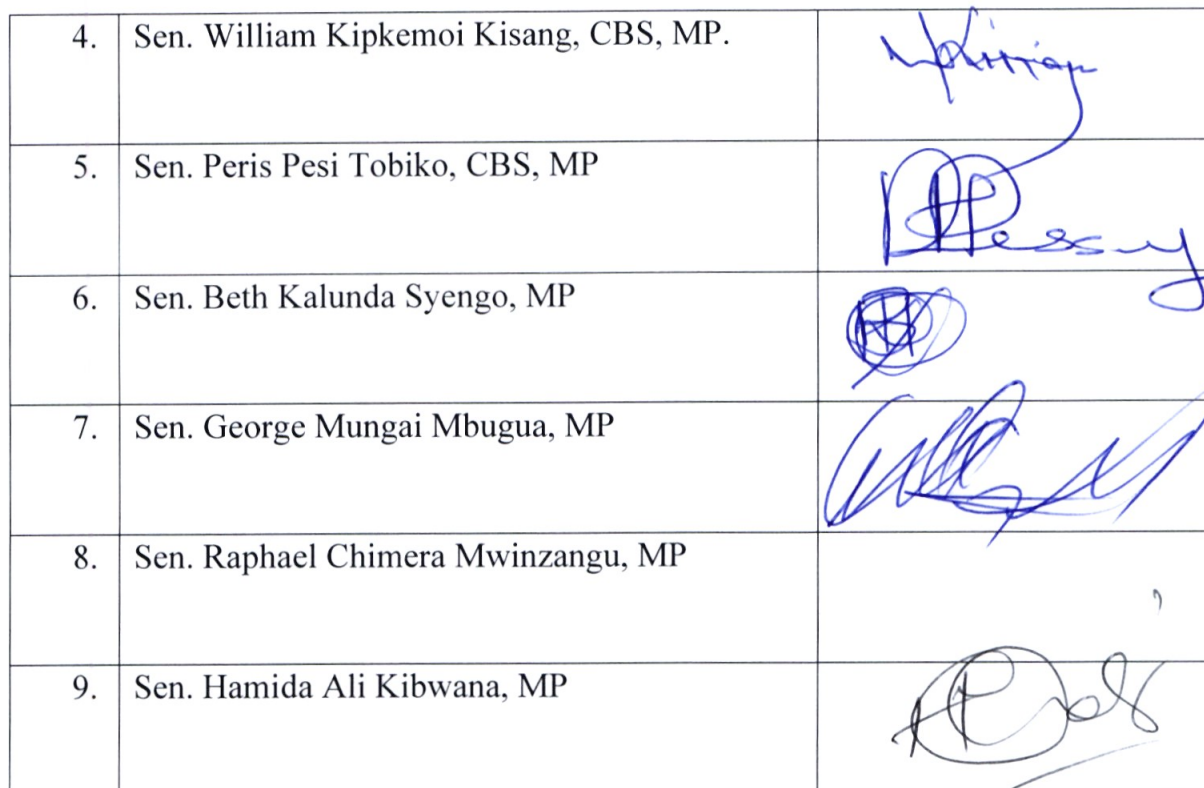 4. Sen. William Kipkemoi Kisang, CBS, MP.
5. Sen. Peris Pesi Tobiko, CBS, MP
6. Sen. Beth Kalunda Syengo, MP
7. Sen. George Mungai Mbugua, MP
8. Sen. Raphael Chimera Mwinzangu, MP
9. Sen. Hamida Ali Kibwana, MP